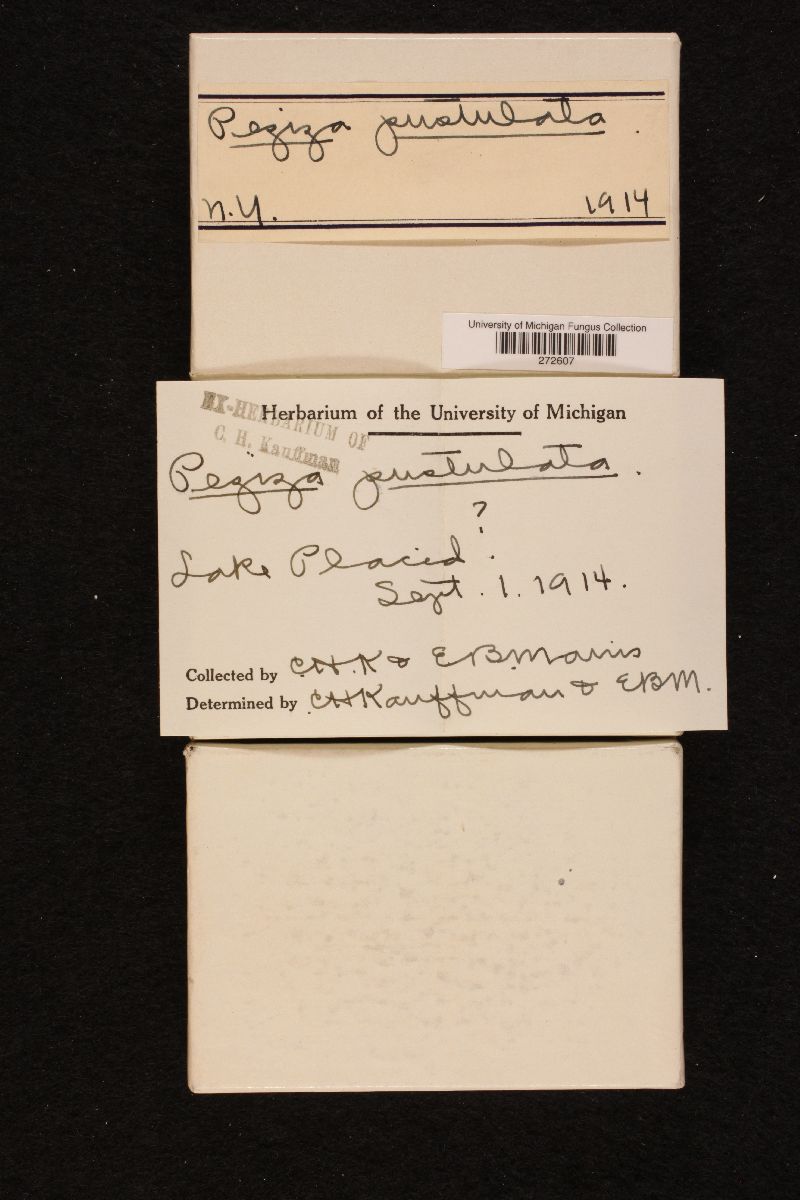 Peziza pustulata.
N.Y. 1914
University of Michigan Fungus Collection
272607
EX-HERBARIUM OF
C. H. Kauffman
Herbarium of the University of Michigan
Peziza pustulata.
?
Lake Placid.
Sept. 1. 1914.
Collected by C.H.K & EBMains
Determined by CHKauffman & EBM.